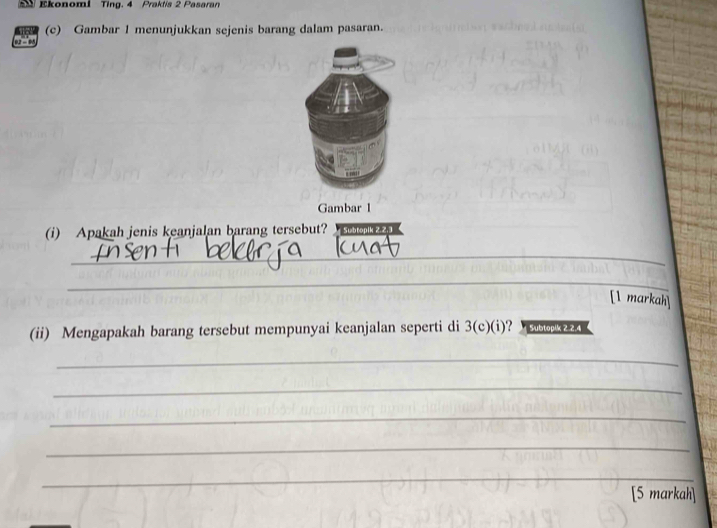 Ekonomi Ting. 4 Praktis 2 Pasaran
(c) Gambar 1 menunjukkan sejenis barang dalam pasaran.
Gambar 1
(i) Apakah jenis keanjalan barang tersebut? Subtopik 2.2.3
Insenti bekerja kuat
[1 markah]
(ii) Mengapakah barang tersebut mempunyai keanjalan seperti di 3(c)(i)? Subtopik 2.2.4
[5 markah]